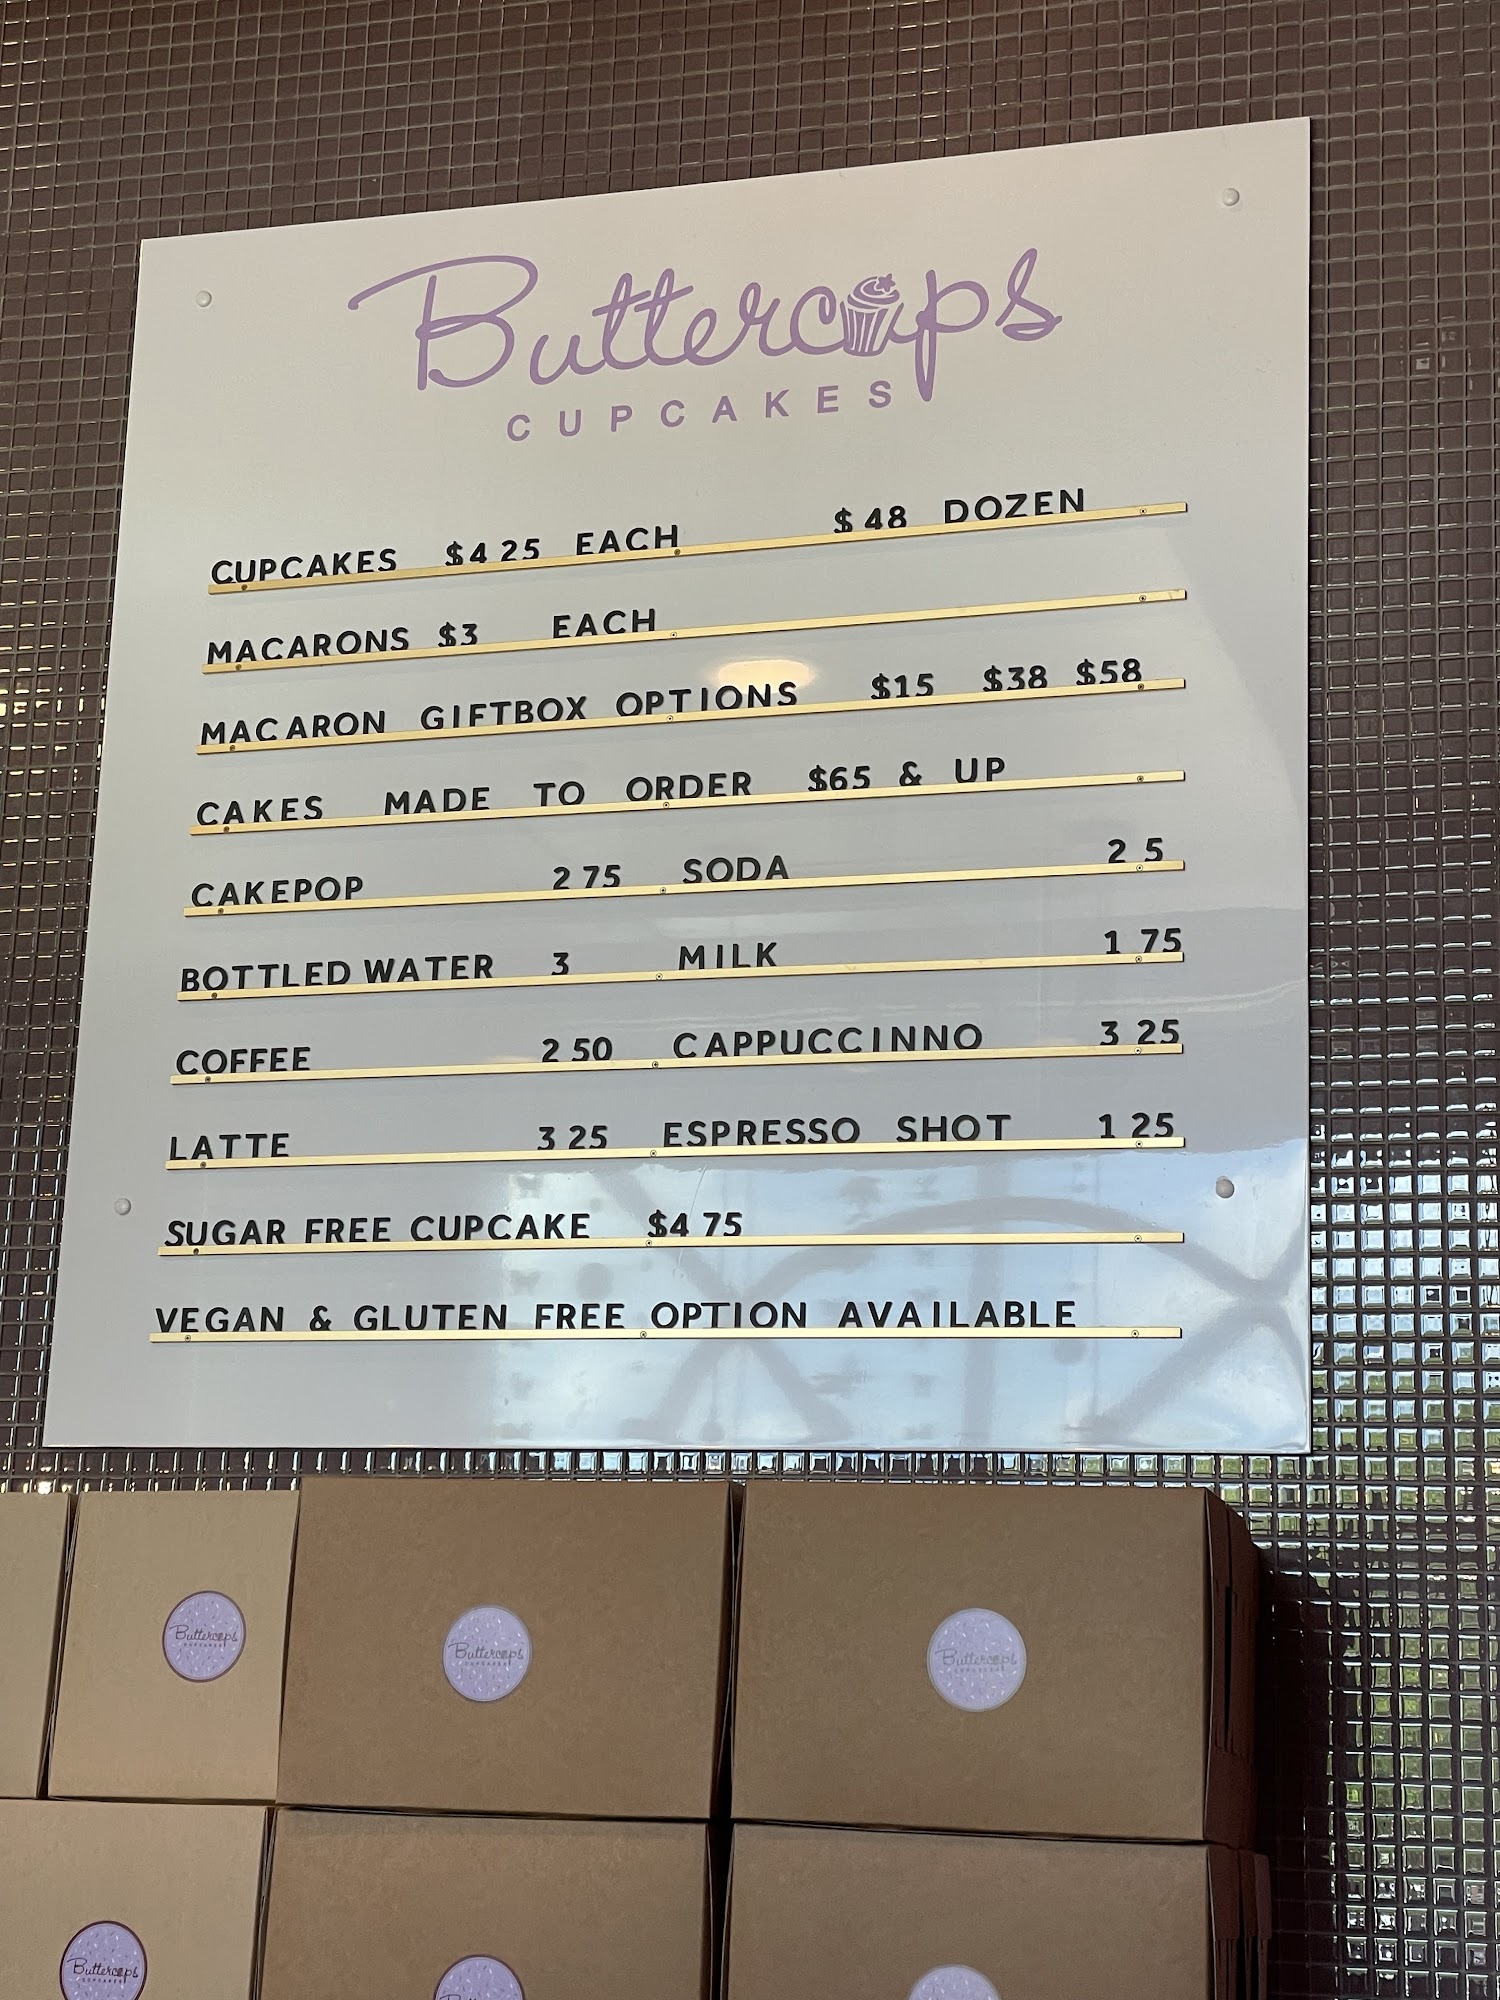 Buttercups
CUPCAKES
CUPCAKES $4 25 EACH $48 DOZEN
MACARONS $3 EACH
MACARON GIFTBOX OPTIONS $15 $38 $58
CAKES MADE TO ORDER $65 & UP
CAKEPOP 2 75 SODA 2 5
BOTTLED WATER 3 MILK 1 75
COFFEE 2 50 CAPPUCCINNO 3 25
LATTE 3 25 ESPRESSO SHOT 1 25
SUGAR FREE CUPCAKE $4 75
VEGAN & GLUTEN FREE OPTION AVAILABLE
Buttercups
CUPCAKES
Buttercups
CUPCAKES
Buttercups
CUPCAKES
Buttercups
CUPCAKES
Buttercups